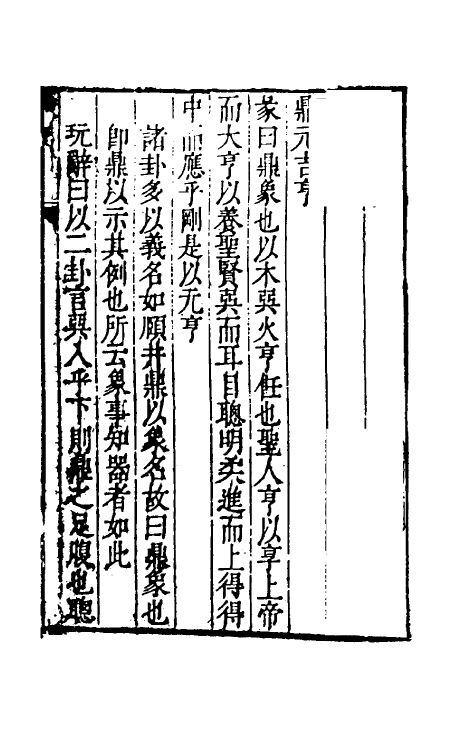 鼎元吉亨
彖曰鼎象也以木巽火亨飪也聖人亨以享上帝
而大亨以養聖賢巽而耳目聰明柔進而上得得
中而應乎剛是以元亨
諸卦多以義名如頤井鼎以象名故曰鼎象也
卽鼎以示其例也所云象事知器者如此
玩辭曰以二卦言巽入乎下則鼎之足腹也聰